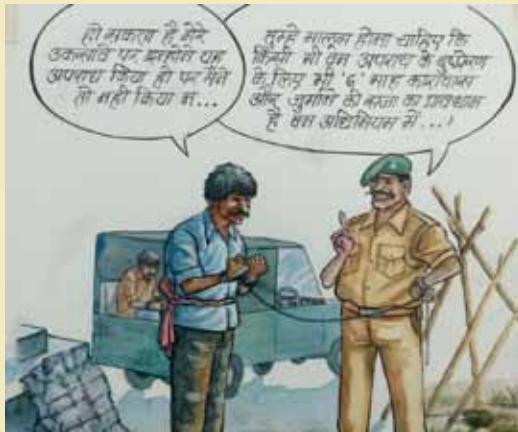 हो सकता है मेरे
उकसावे पर इन्होंने यह
अपराध किया हो पर मैंने
तो नहीं किया न...
तुम्हें मालूम होना चाहिए कि
किसी भी वन अपराध के दुष्प्रेरण
के लिए भी '6' माह कारावास
और जुर्माने की सजा का प्रावधान
है वन अधिनियम में...!